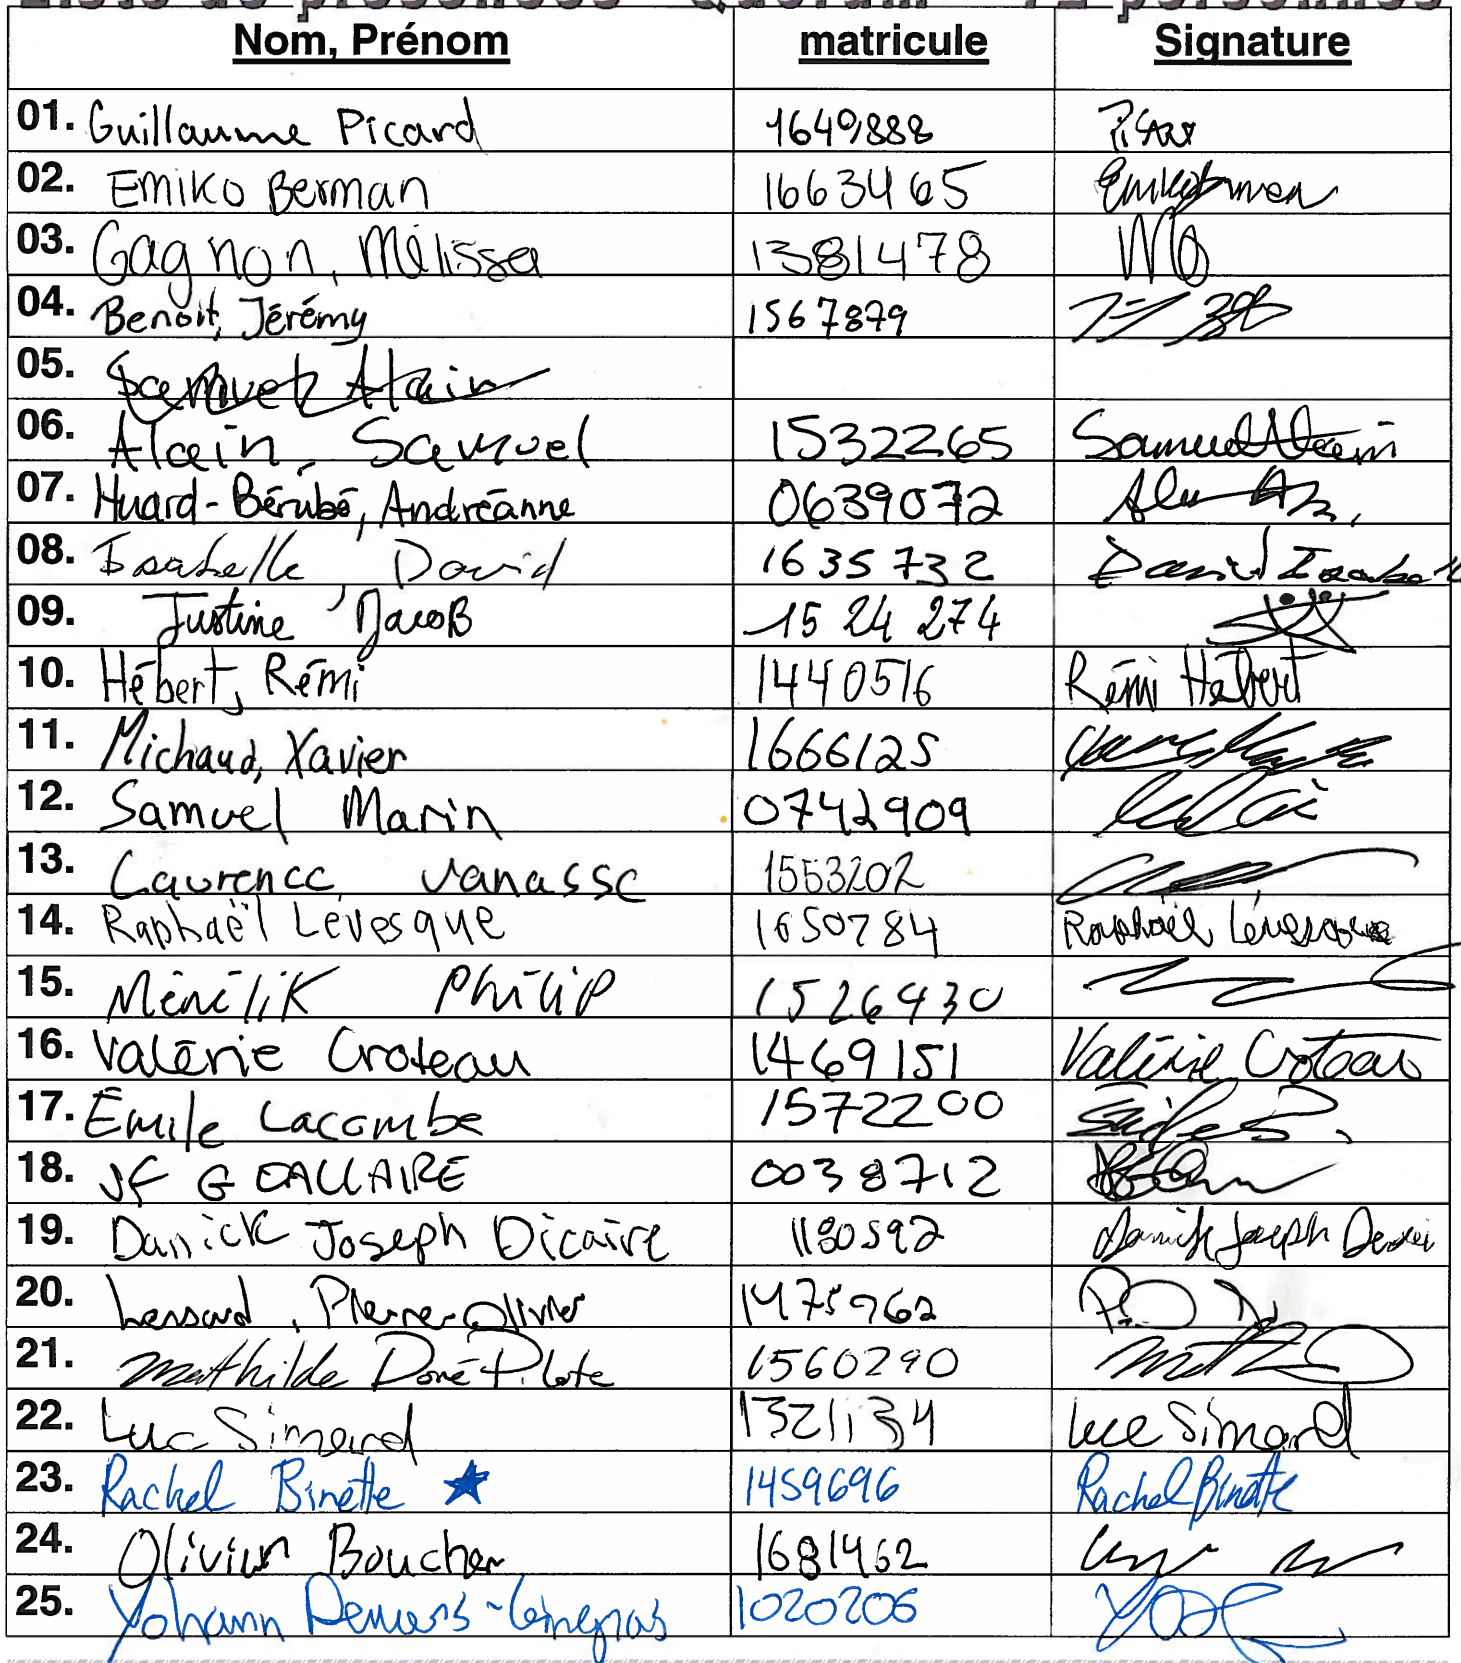 Liste de présences - Quorum - 72 personnes
Nom, Prénom matricule Signature
01. Guillaume Picard 1649888
02. Emiko Berman 1663465
03. Gagnon, Mélissa 1381478
04. Benoit, Jérémy 1567879
05. Samuel Alain
06. Alain, Samuel 1532265 Samuel Alain
07. Huard-Bérubé, Andréanne 0639072
08. Isabelle David 1635732 David Isabelle
09. Justine Jacob 1524274
10. Hébert, Rémi 1440516 Rémi Hébert
11. Michaud, Xavier 1666125
12. Samuel Marin 0742909
13. Laurence Vanasse 1553202
14. Raphaël Lévesque 1650784 Raphaël Lévesque
15. Ménélik Philip 1526430
16. Valérie Croteau 1469151 Valérie Croteau
17. Emile Lacombe 1572200
18. JF G DALLAIRE 0038712
19. Danick Joseph Dicaire 1180592 Danick Joseph Dicaire
20. Lessard, Pierre-Olivier 1475962
21. Mathilde Doré-Pilote 1560290
22. Luc Simard 1321134 Luc Simard
23. Rachel Binette ★ 1459696 Rachel Binette
24. Olivier Boucher 1681462
25. Yohann Demers-Gingras 1020206